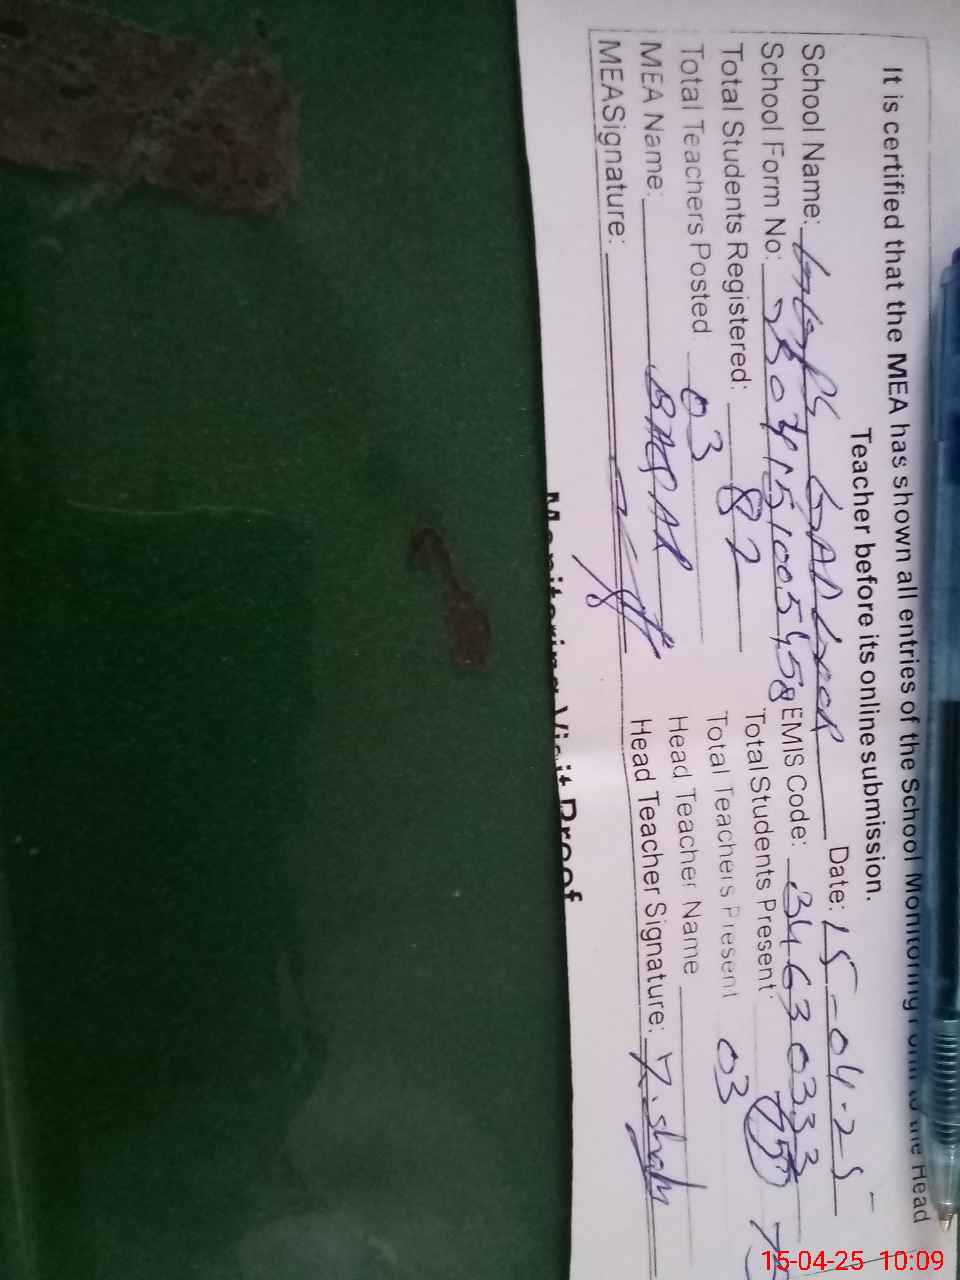 It is certified that the MEA has shown all entries of the School Monitoring Form to the Head
Teacher before its online submission.
School Name: Date: 15-04-25
School Form No: EMIS Code: 34630333
Total Students Registered: 82 Total Students Present: 75
Total Teachers Posted 03 Total Teachers Present 03
MEA Name: Head Teacher Name
MEASignature: Head Teacher Signature:
Monitoring Visit Proof
15-04-25 10:09